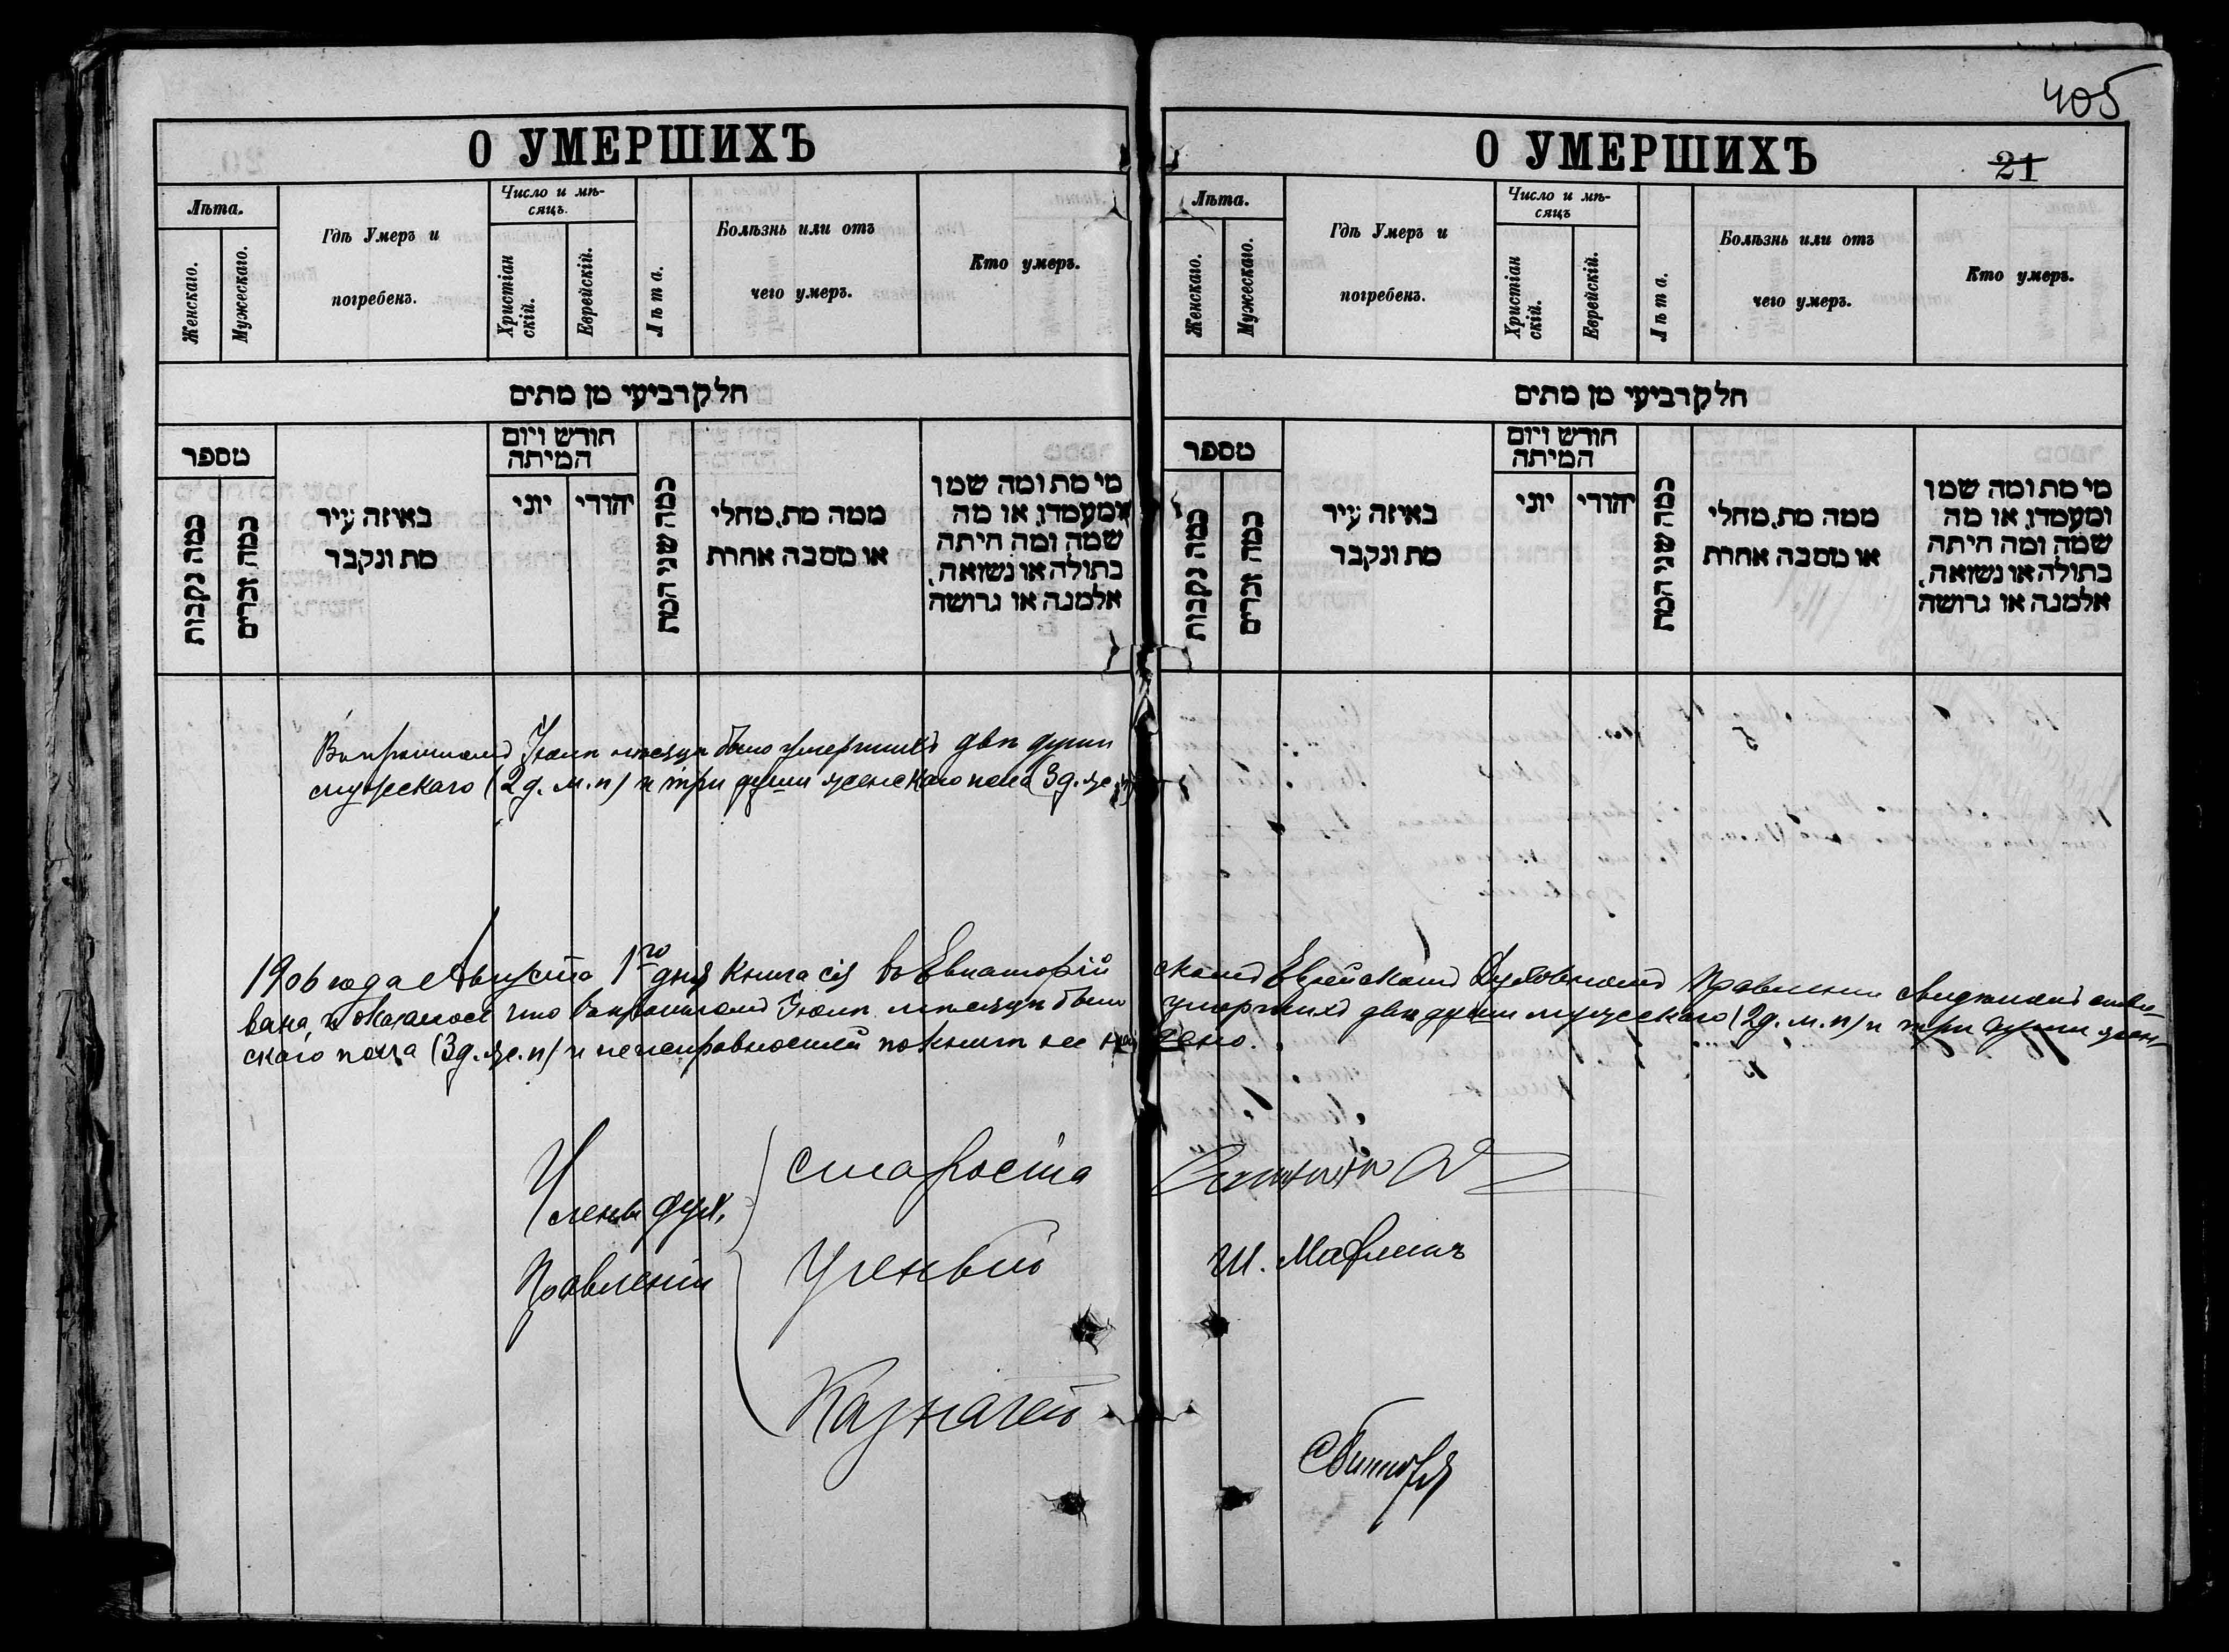 О УМЕРШИХЪ
Лѣта.
Женскаго.
Мужескаго.
Гдѣ Умеръ и
погребенъ.
Число и мѣ-
сяцъ.
Христіан
скій.
Еврейскій.
Лѣта.
Болѣзнь или отъ
чего умеръ.
Кто умеръ.
חלק רביעי מן מתים
מספר
כמה נקבות
כמה זכרים
באיזה עיר
מת ונקבר
חודש ויום
המיתה
יוני
יהודי
כמה שני המת
ממה מת, מחלי
או מסבה אחרת
מי מת ומה שמו
ומעמדו, או מה
שמה ומה היתה
בתולה או נשואה,
אלמנה או גרושה
Въ прошломъ Іюлѣ мѣсяцѣ было умершихъ двѣ души
мужескаго (2 д. м. п) и три души женскаго пола (3 д. же. п)
405
О УМЕРШИХЪ
21
Лѣта.
Женскаго.
Мужескаго.
Гдѣ Умеръ и
погребенъ.
Число и мѣ-
сяцъ
Христіан
скій.
Еврейскій.
Лѣта.
Болѣзнь или отъ
чего умеръ.
Кто умеръ.
חלק רביעי מן מתים
מספר
כמה נקבות
כמה זכרים
באיזה עיר
מת ונקבר
חודש ויום
המיתה
יוני
יהודי
כמה שני המת
ממה מת, מחלי
או מסבה אחרת
מי מת ומה שמו
ומעמדו, או מה
שמה ומה היתה
בתולה או נשואה,
אלמנה או גרושה
1906 года Августа 1го дня книга сія въ Евпаторій скомъ Еврейскомъ Духовномъ Правленіи свидѣтельство-
вана, и оказалось что въ прошломъ Іюлѣ мѣсяцѣ было умершихъ двѣ души мужескаго (2 д. м. п) и три души жен-
скаго пола (3 д. же. п) и неисправностей по книгѣ не най дено.
Члены дух.
Правленія
Староста
Ученый
Ш.
Казначей